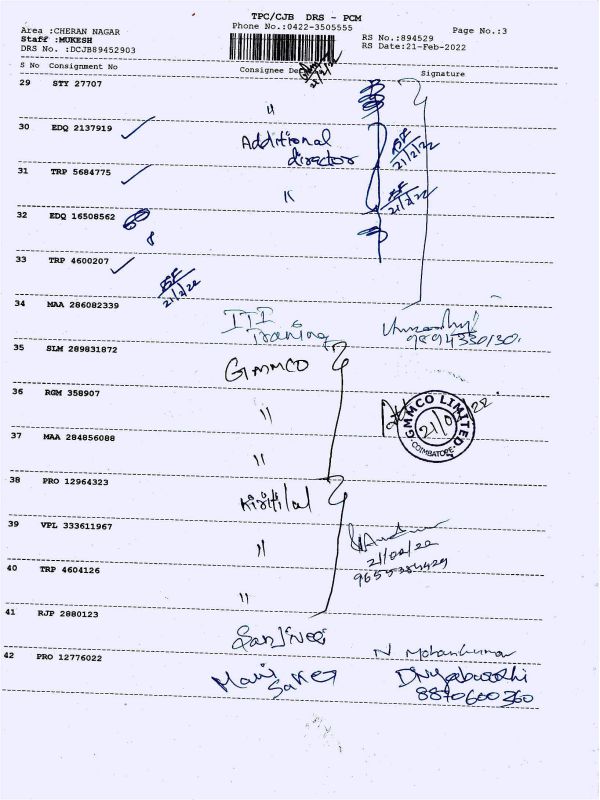 TPC/CJB DRS - PCM
Area :CHERAN NAGAR
Phone No.:0422-3505555
Page No.:3
Staff :MUKESH
RS No.:894529
DRS No. :DCJB89452903
RS Date:21-Feb-2022
S No Consignment No Consignee De Signature
21/2/22
29 STY 27707
"
30 EDQ 2137919
Additional
director
21/2/22
31 TRP 5684775
"
21/2/22
32 EDQ 16508562
33 TRP 4600207
21/2/22
34 MAA 286082339
ITI
Training
9894330130.
35 SLM 289831872
GMMCO
36 RGM 358907
"
GMMCO LIMITED
COIMBATORE
37 MAA 284856088
"
38 PRO 12964323
Kirtilal
39 VPL 333611967
"
21/02/22
9655384429
40 TRP 4604126
"
41 RJP 2880123
N Mohankumar
42 PRO 12776022
8870600360